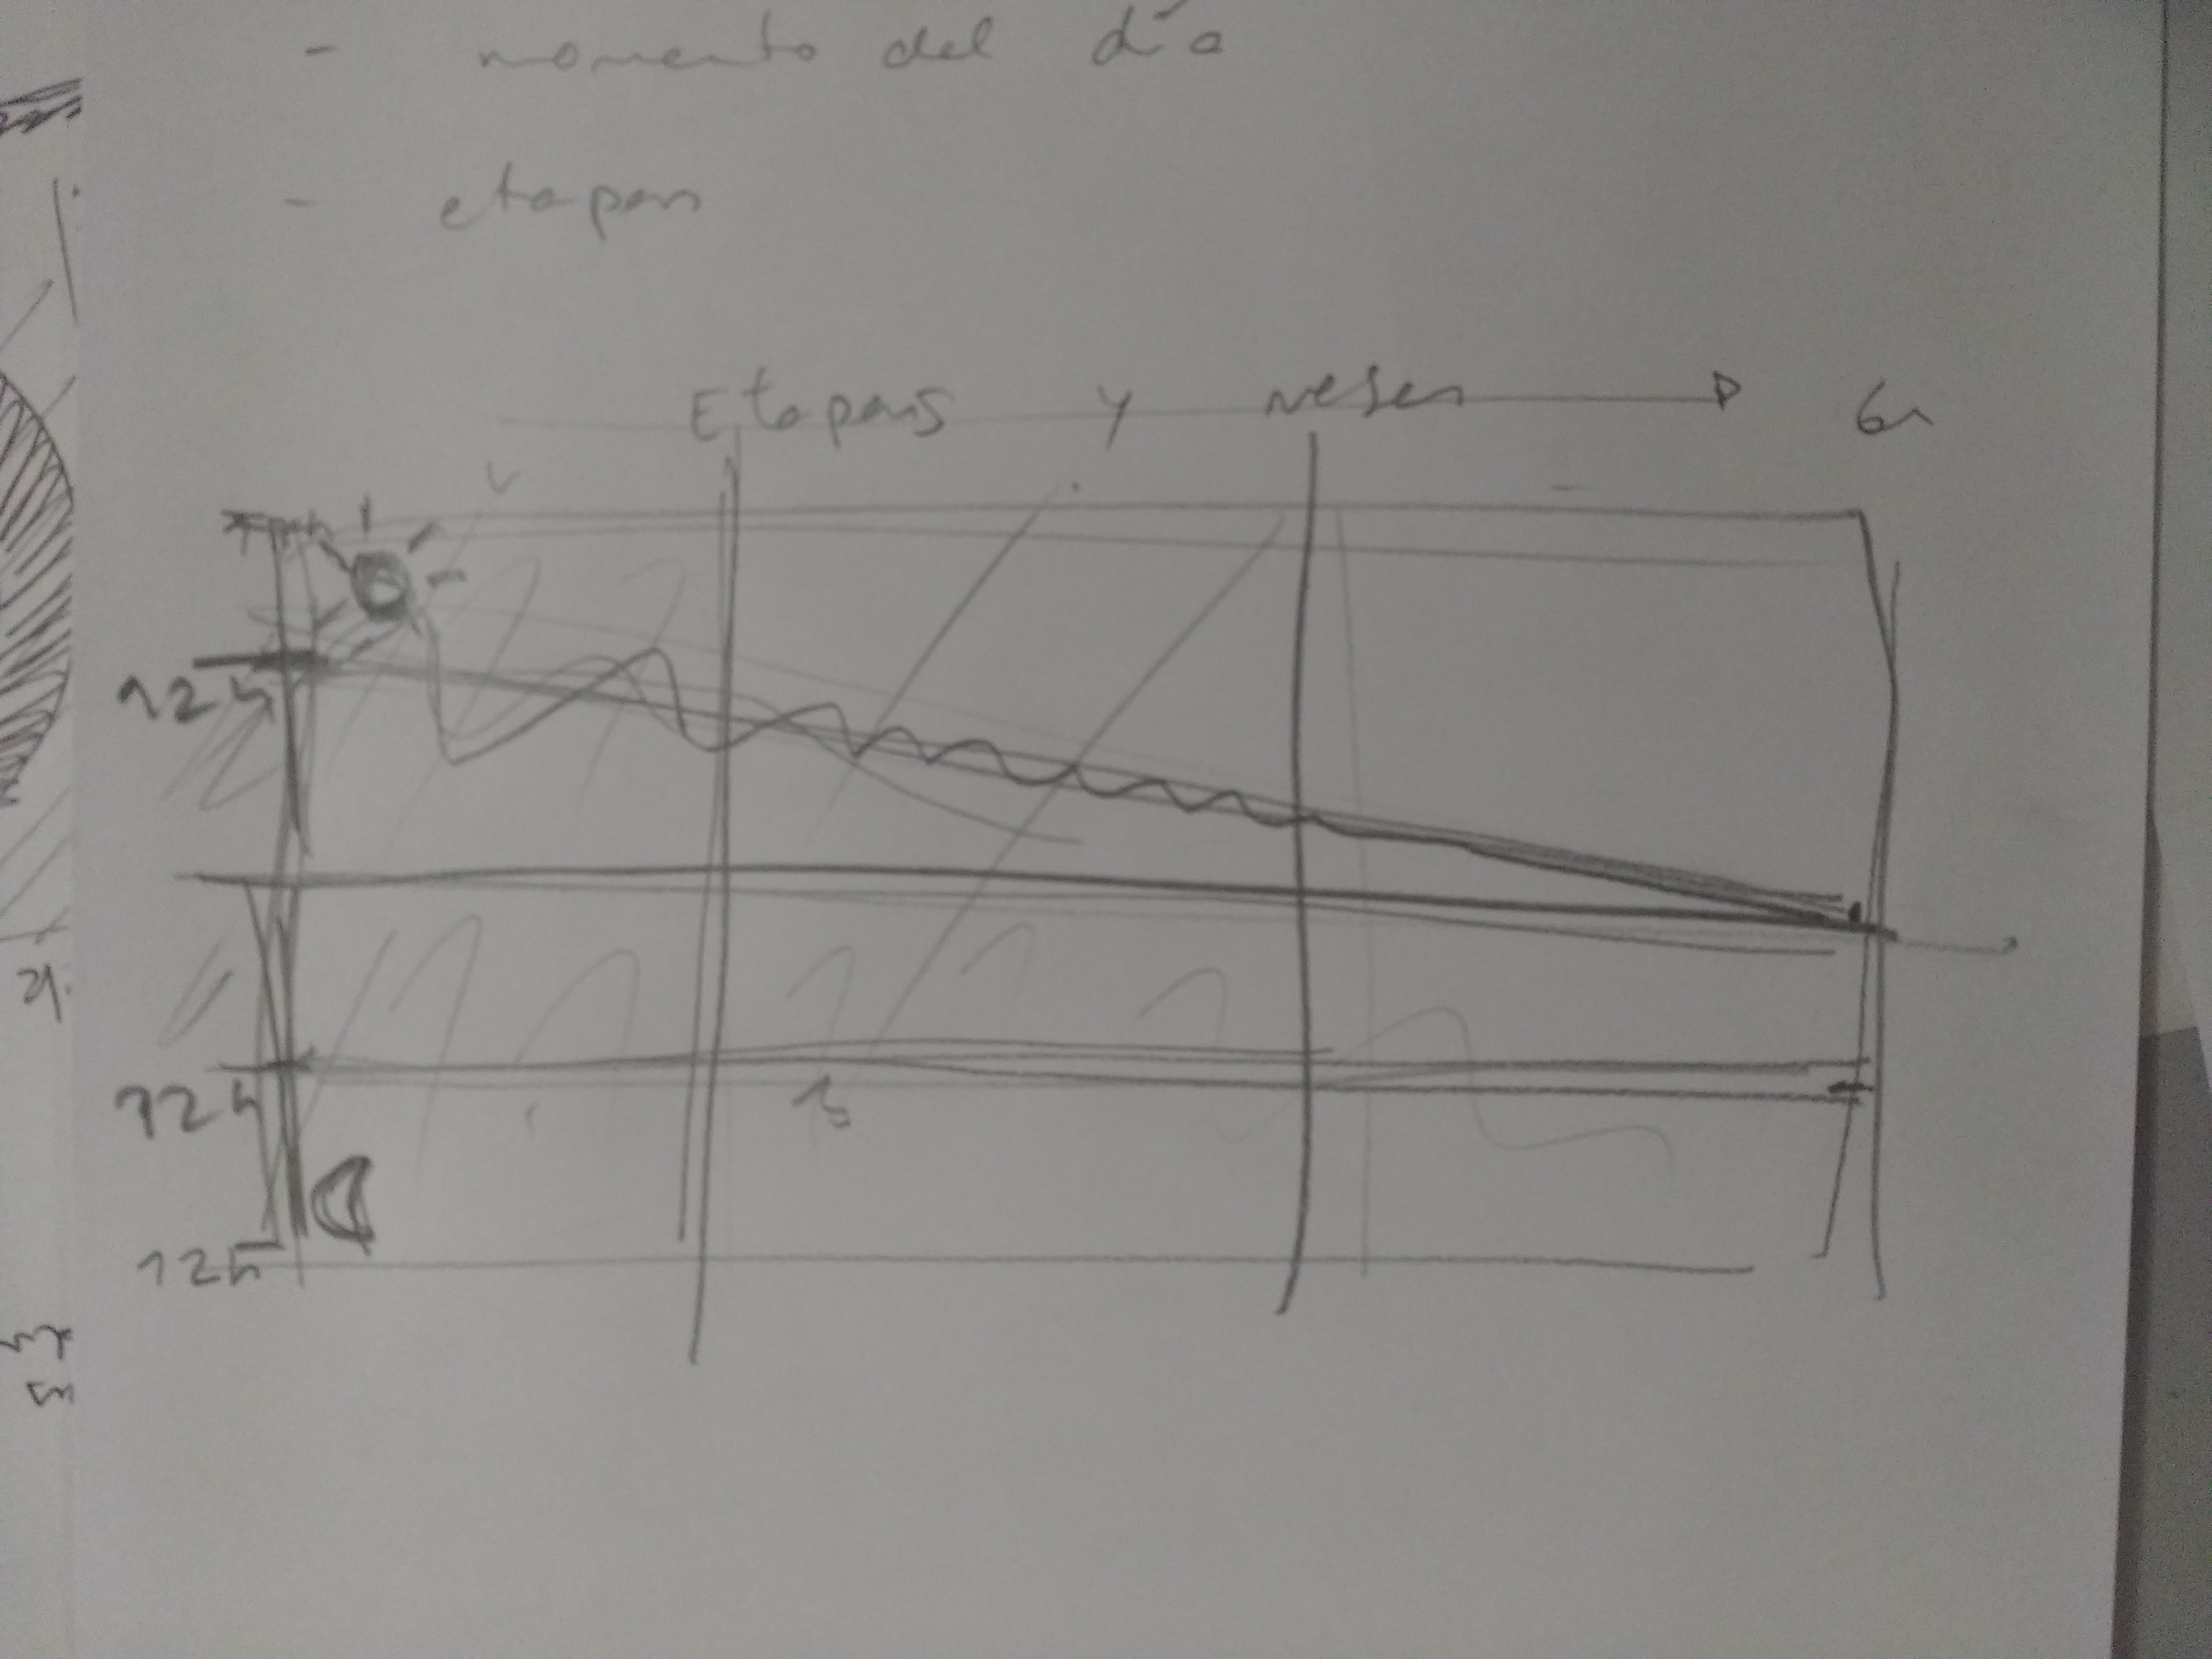 - momento del día
- etapas
Etapas y meses 6m
12h
12h
12h